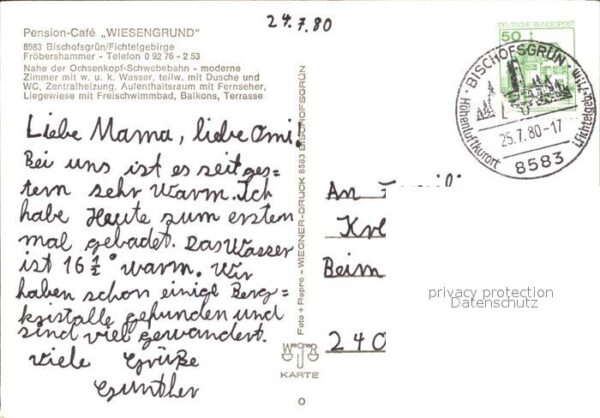 24.7.80
Pension-Café „WIESENGRUND"
8583 Bischofsgrün/Fichtelgebirge
Fröbershammer - Telefon 0 92 76 - 2 53
Nahe der Ochsenkopf-Schwebebahn - moderne
Zimmer mit w. u. k. Wasser, teilw. mit Dusche und
WC, Zentralheizung, Aufenthaltsraum mit Fernseher,
Liegewiese mit Freischwimmbad, Balkons, Terrasse
Liebe Mama, liebe Omi.
Bei uns ist es seit ges=
tern sehr warm. Ich
habe Heute zum ersten
mal gebadet. Das Wasser
ist 16 1/2 ° warm. Wir
haben schon einige Berg=
kristalle gefunden und
sind viel gewandert.
Viele Grüße
Gunther
Foto + Repro - WIEGNER-DRUCK 8583 BISCHOFSGRÜN
WIEGNER
KARTE
DEUTSCHE BUNDESPOST
50
BISCHOFSGRÜN
Höhenluftkurort
25.7.80-17
8583
An
Kre
Beim
240
privacy protection
Datenschutz